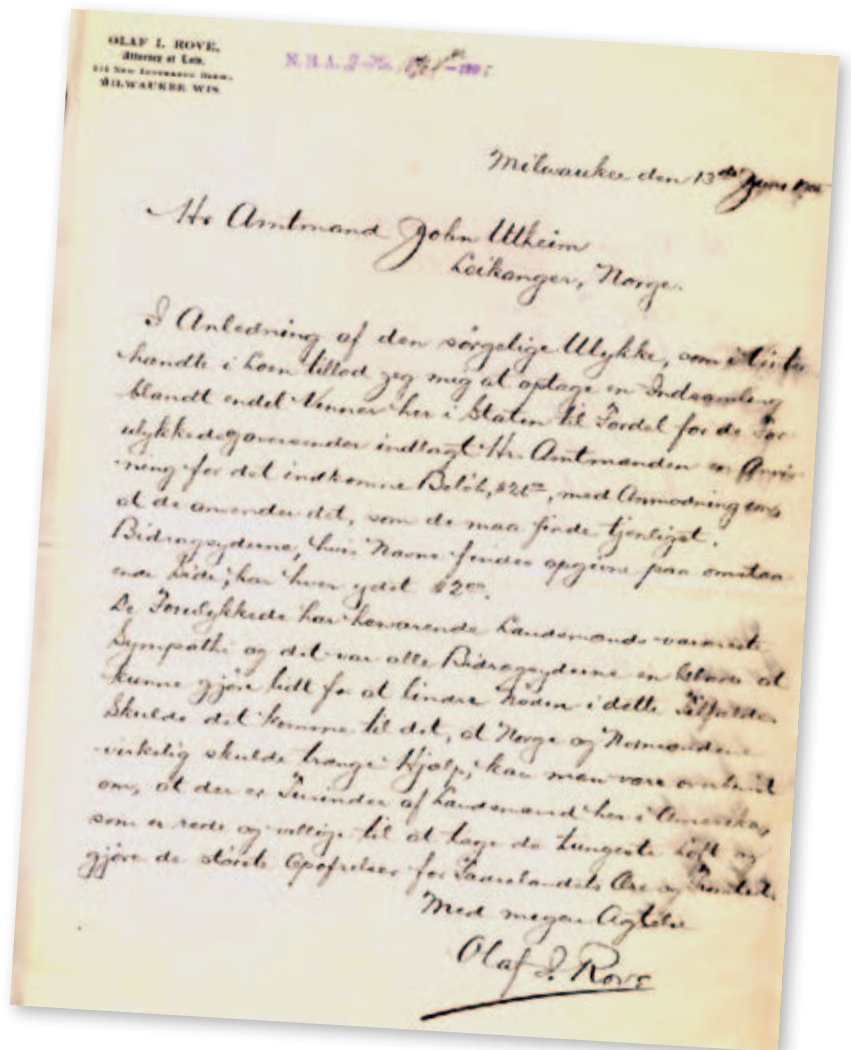 OLAF I. ROVE,
Attorney at Law.
MILWAUKEE WIS.
N.B.A. 2-No.
Milwaukee den 13de Juni
Hr Amtmand John Utheim
Leikanger, Norge.
I Anledning af den sørgelige Ulykke, som
hændte i Loen tillod jeg mig at optage en Indsamling
blandt endel Venner her i Staten til Fordel for de For
ulykkede indlagt Hr. Amtmanden en Anvis
ning for det indkomne Beløb, med Anmodning om
at de anvender det, som de maa finde tjenligst.
Bidragsyderne, hvis Navne findes opgivne paa omstaa
ende Side, har hver ydet $2.00.
De Forulykkede har herværende Landsmænds varmeste
Sympathi og det var alle Bidragsyderne en Glæde at
kunne gjøre lidt for at lindre Nøden i dette Tilfælde.
Skulde det komme til det, at Norge og Nordmænden
virkelig skulde trænge Hjælp, kan man være
om, at der er Tusinder af Landsmænd her i Amerika,
som er rede og villige til at tage de tungeste Løft og
gjøre de største Opofrelser for Fædrelandets Ære og
Med megen Agtelse
Olaf I. Rove